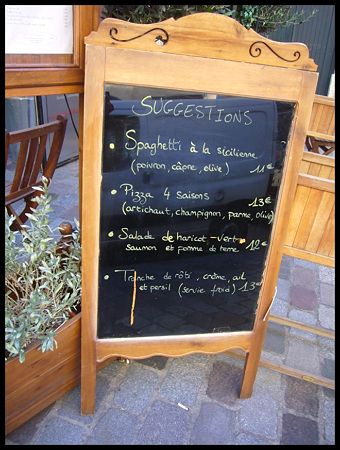 SUGGESTIONS
• Spaghetti à la sicilienne
(poivron, câpre, olive) 11€
• Pizza 4 saisons 13€
(artichaut, champignon, parme, olive)
• Salade de haricot-vert-
saumon et pomme de terre 12€
• Tranche de rôti, crème, ail
et persil (servie froid) 13€